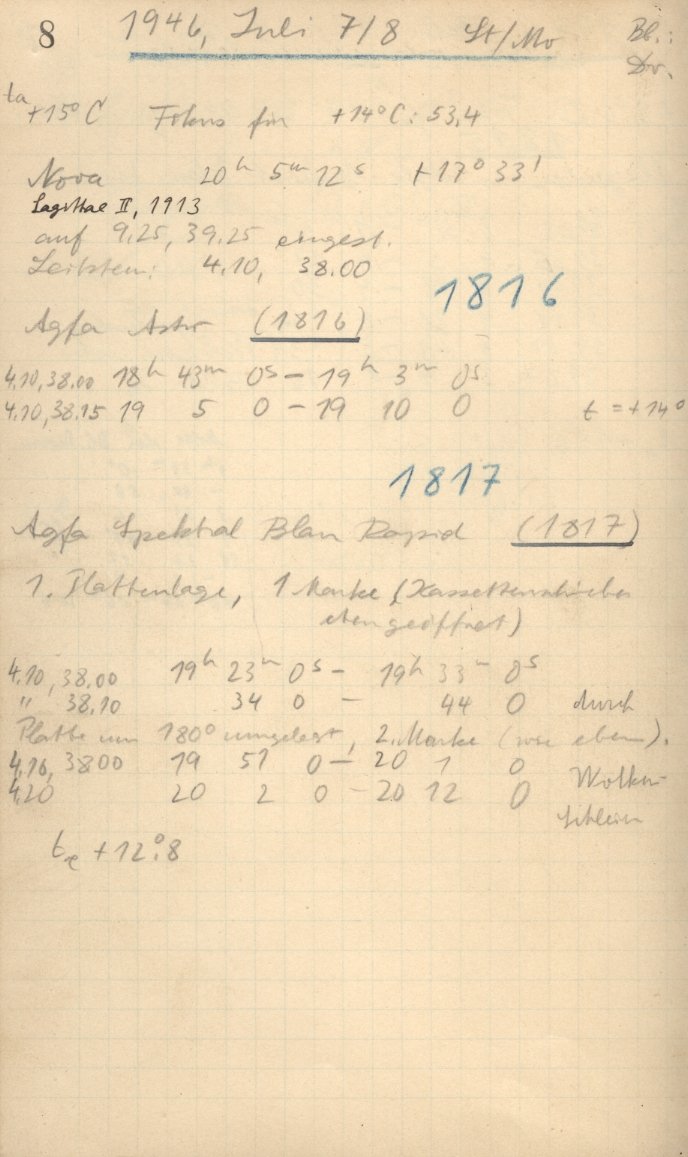 8 1946, Juli 7/8 St/Mo Bl.:
Dr.
ta +15° C Fokus für +14° C: 53,4
Nova 20h 5m 12s +17° 33'
Sagittae II, 1913
auf 9.25, 39.25 eingest.
Leitstern: 4.10, 38.00
1816
Agfa Astro (1816)
4.10, 38.00 18h 43m 0s – 19h 3m 0s
4.10, 38.15 19 5 0 – 19 10 0 t = +14°
1817
Agfa Spektral Blau Rapid (1817)
1. Plattenlage, 1 Marke (Kassettenschieber
eben geöffnet)
4.10, 38.00 19h 23m 0s – 19h 33m 0s
" 38.10 34 0 – 44 0 durch
Platte um 180° umgelegt, 2. Marke (wie eben).
4.10, 38.00 19 51 0 – 20 1 0 Wolken-
4.20 20 2 0 – 20 12 0 schleier
te +12°.8